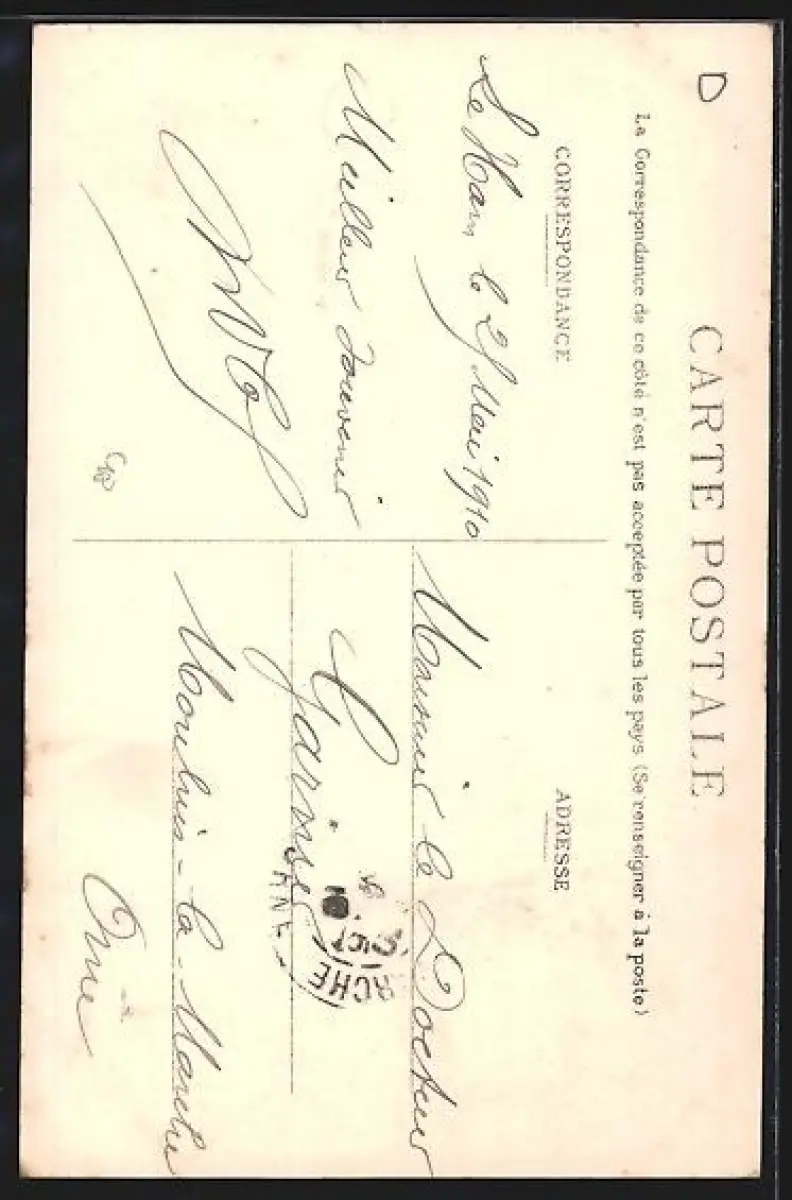 D
CARTE POSTALE
La Correspondance de ce côté n'est pas acceptée par tous les pays. (Se renseigner à la poste)
CORRESPONDANCE
Le Ham le Mai 1910
Meilleur Souvenir
ADRESSE
Monsieur le Docteur
Moulins-la-Marche
Orne
RCHE
10